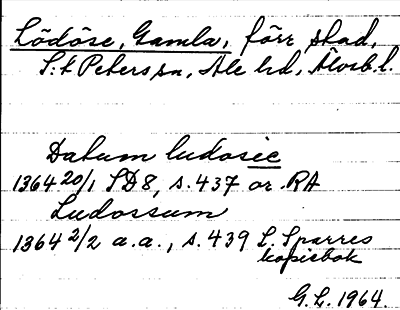 Lödöse, Gamla, förr stad,
S:t Peters sn, Ale hd, Älvsb.l.
Datum ludosie
1364 20/1 SD8, s.437 or. RA
Ludossum
1364 2/2 a.a., s.439 L. Sparres
kopiebok
G.L. 1964.